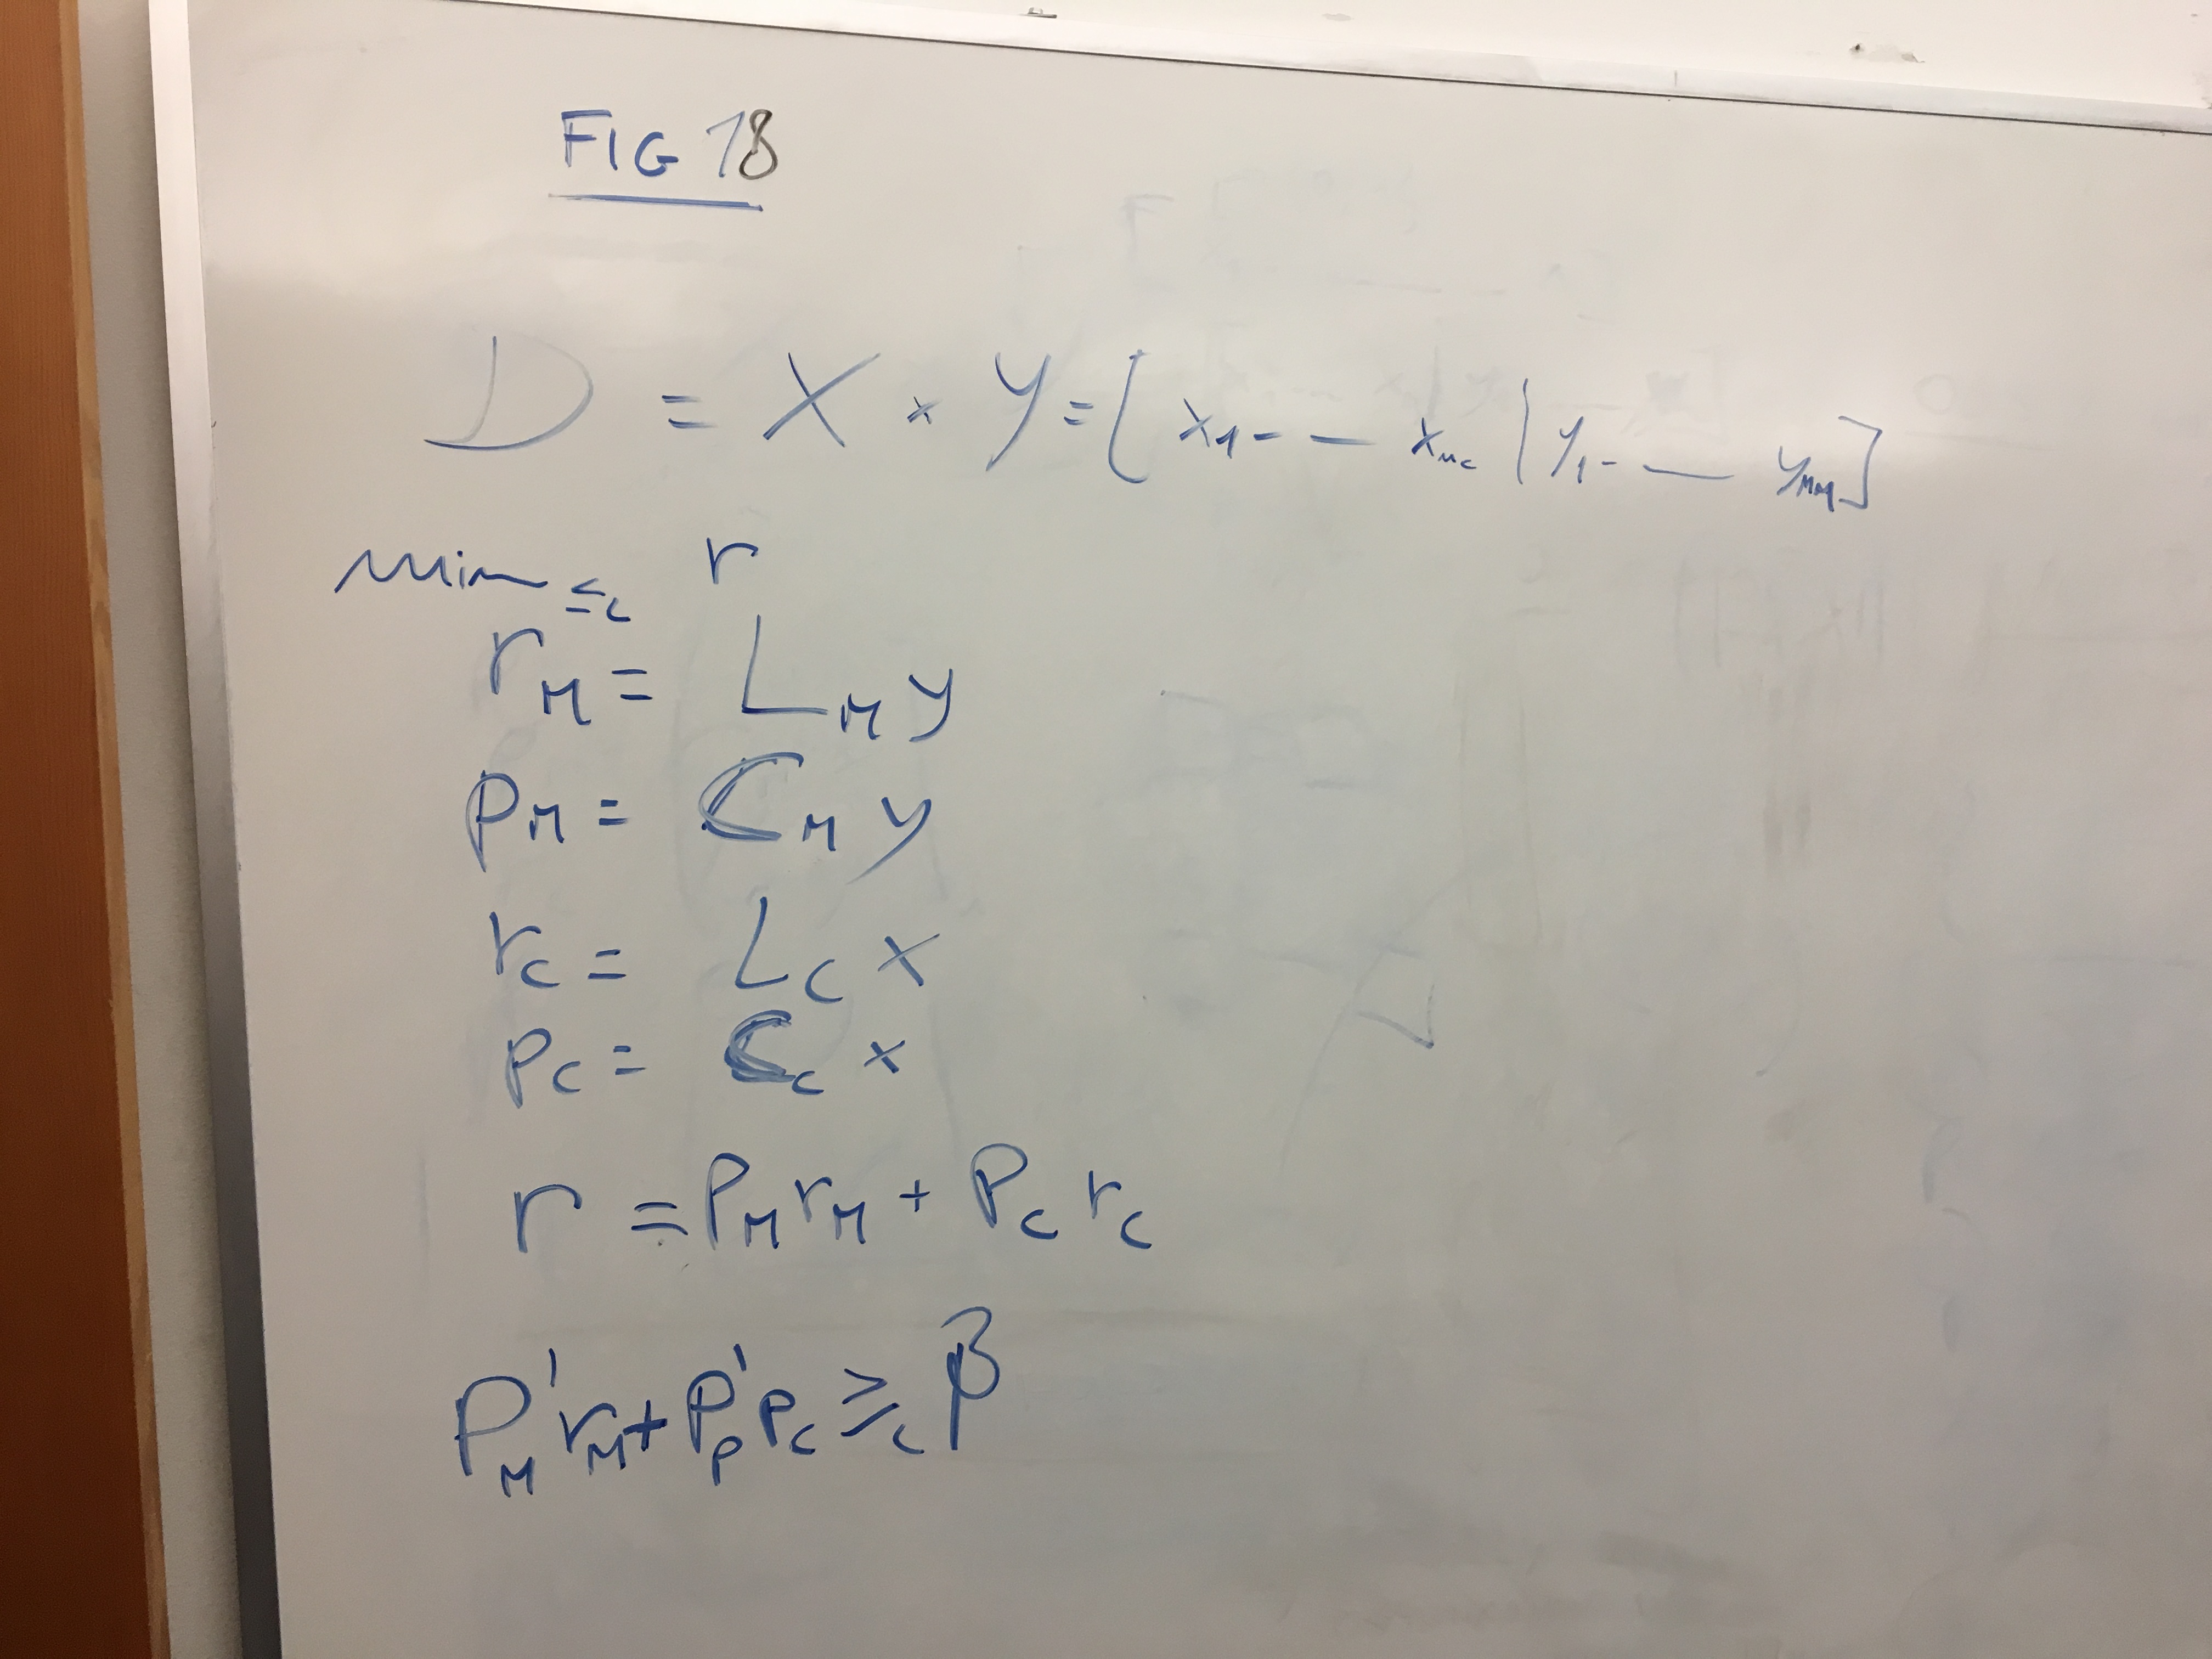 FIG 18
D = X × Y = [ x₁ - — x_nc | y₁ - — y_nM ]
min ≤_c r
r_M = L_M y
p_M = C_M y
r_c = L_c x
p_c = C_c x
r = P_M r_M + P_c r_c
P'_M r_M + P'_p p_c ≥_c β